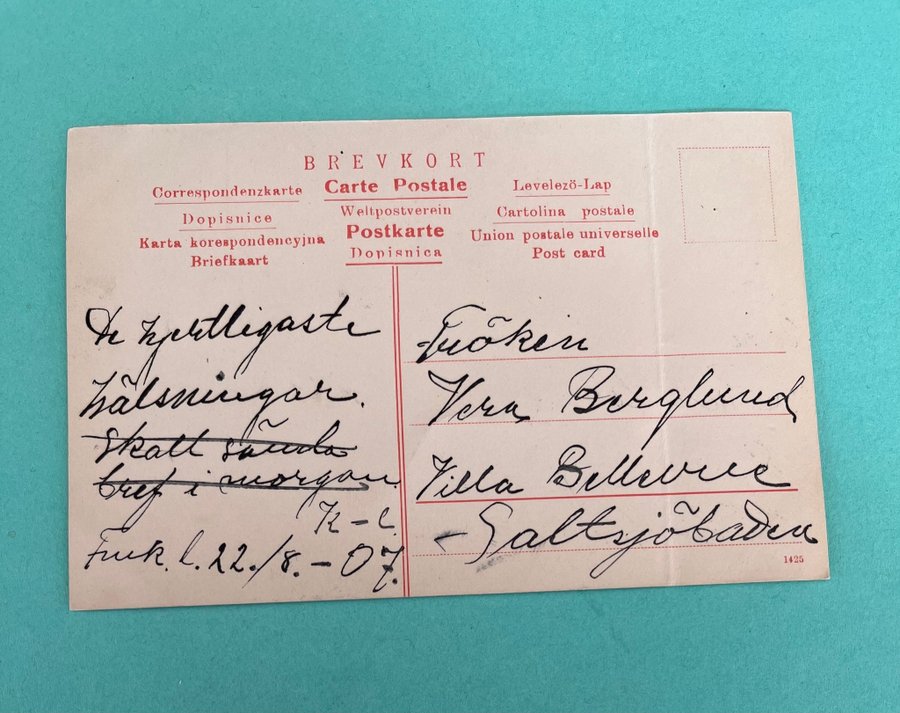 BREVKORT
Correspondenzkarte Carte Postale Levelezö-Lap
Dopisnice Weltpostverein Cartolina postale
Karta korespondencyjna Postkarte Union postale universelle
Briefkaart Dopisnica Post card
De hjertligaste
hälsningar.
Skall sända
bref i morgon.
K-l
22./8.-07.
Fröken
Vera Berglund
Villa Bellevue
Saltsjöbaden
1425